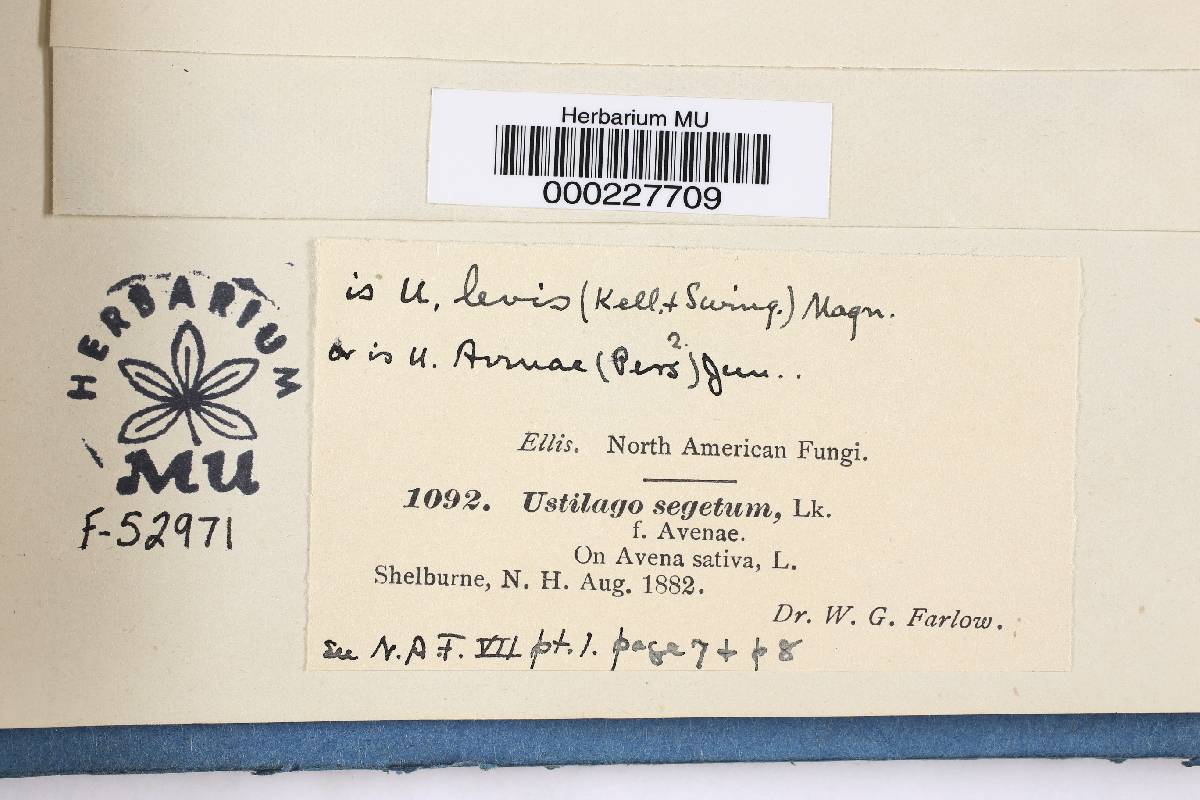 Herbarium MU
000227709
HERBARIUM
MU
F-52971
is U. levis (Kell. + Swing.) Magn.
or is U. Avenae (Pers ?) Jen..
Ellis. North American Fungi.
1092. Ustilago segetum, Lk.
f. Avenae.
On Avena sativa, L.
Shelburne, N. H. Aug. 1882.
Dr. W. G. Farlow.
see N.A.F. VII pt. 1. page 7 + p 8